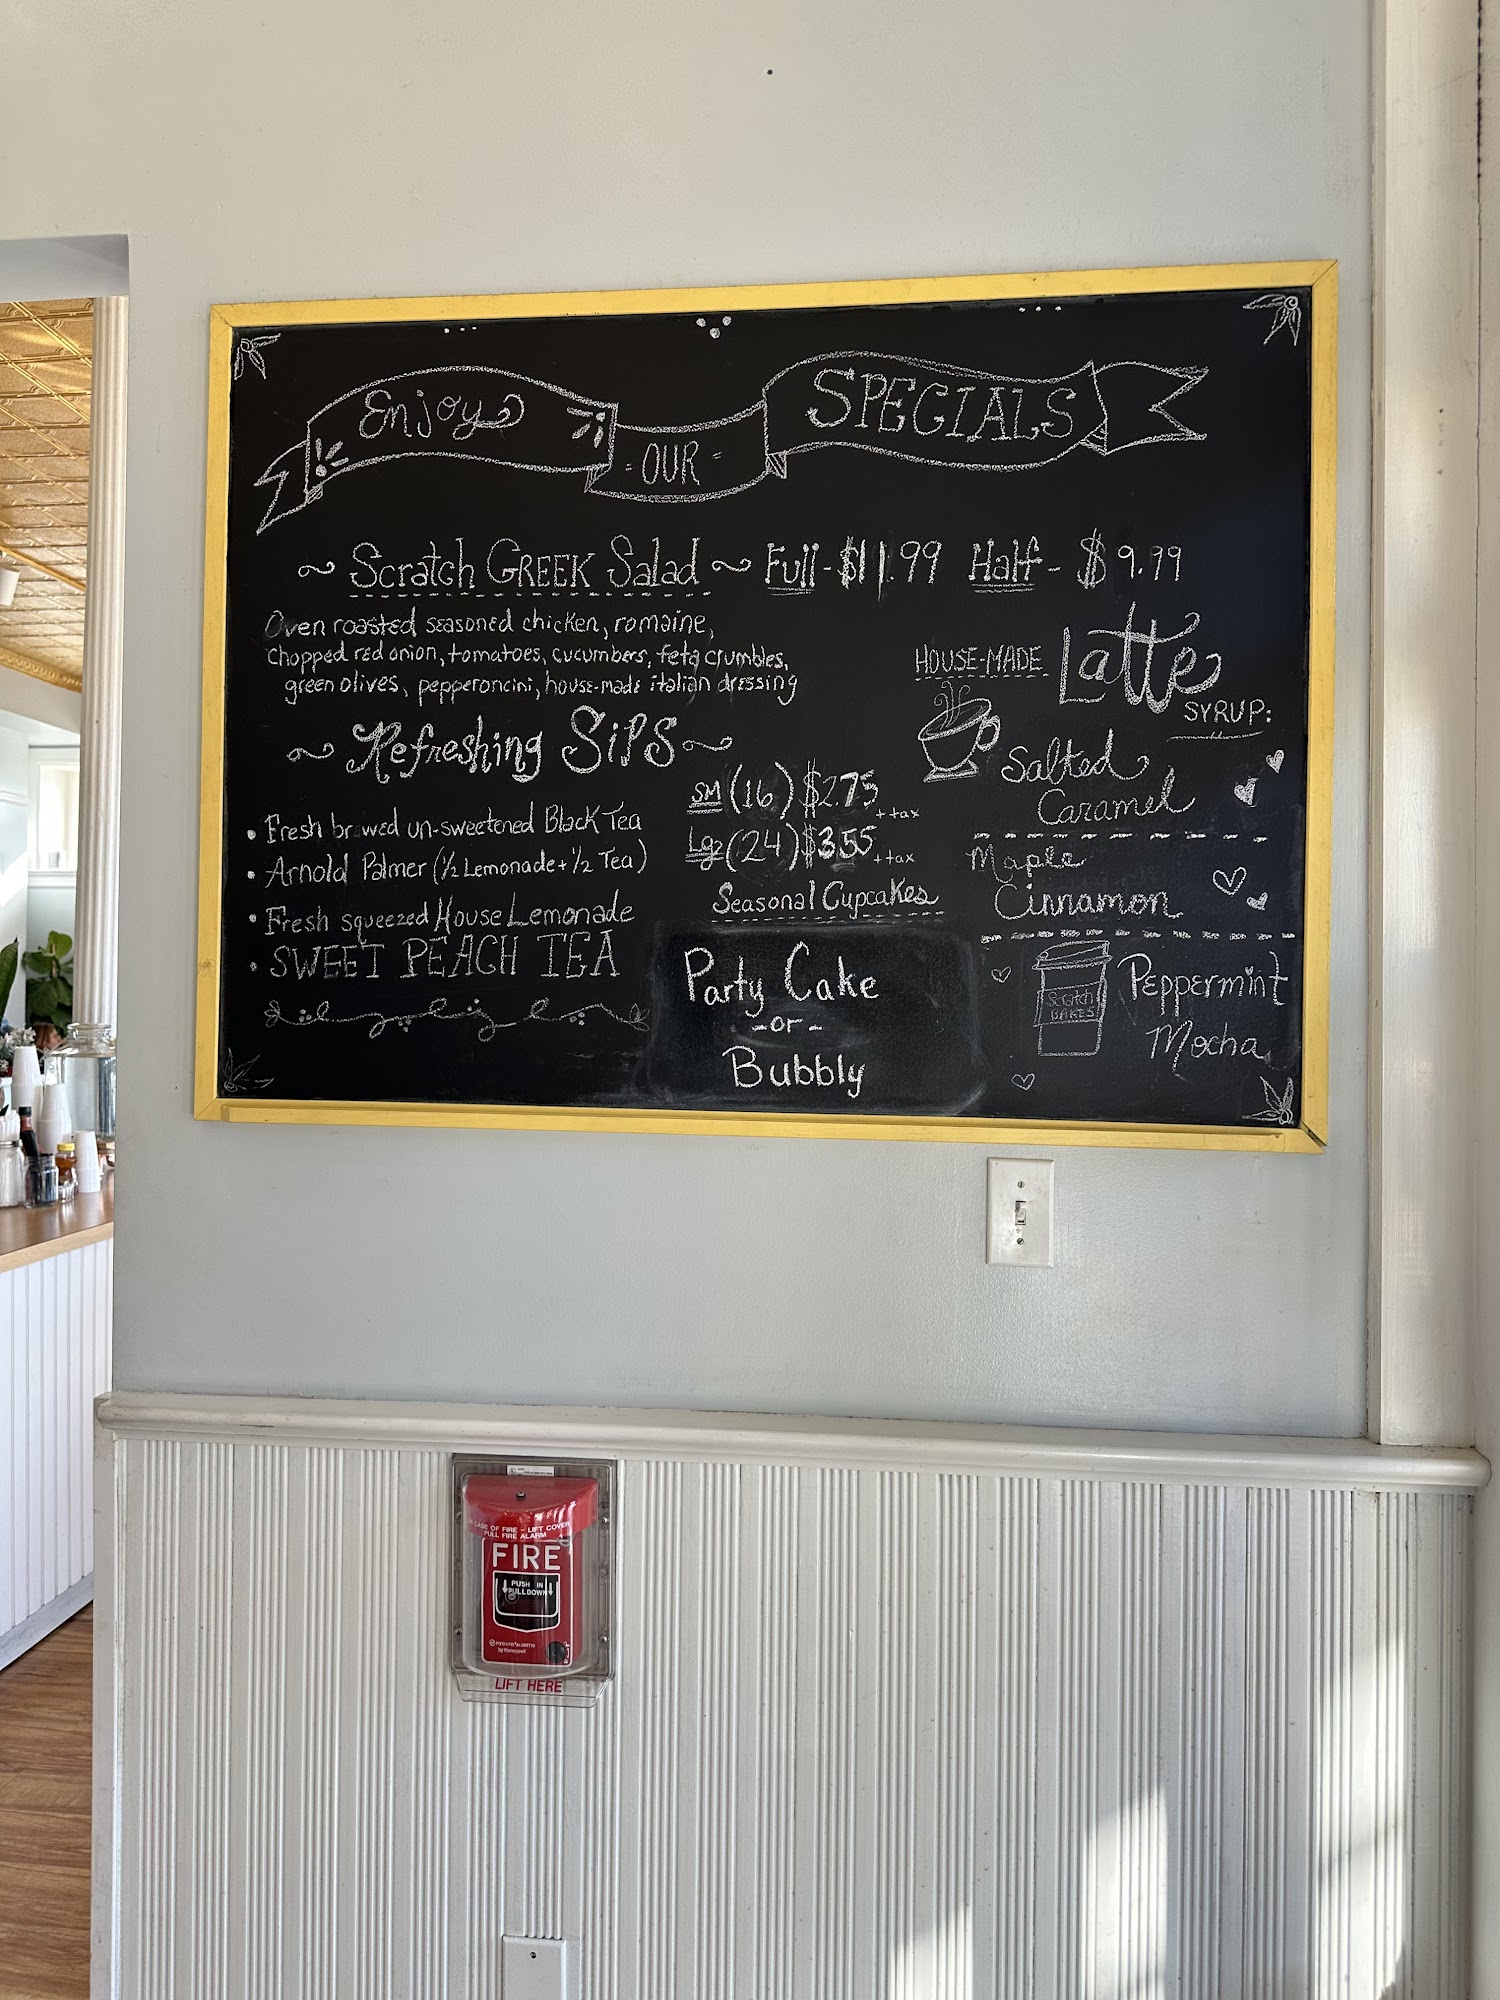 Enjoy
- OUR -
SPECIALS
~ Scratch GREEK Salad ~ Full - $11.99 Half - $9.99
Oven roasted seasoned chicken, romaine,
chopped red onion, tomatoes, cucumbers, feta crumbles,
green olives, pepperoncini, house-made italian dressing
~ Refreshing SiPS ~
SM (16) $2.75 + tax
Lg (24) $3.55 + tax
• Fresh brewed un-sweetened Black Tea
• Arnold Palmer (1/2 Lemonade + 1/2 Tea)
• Fresh squeezed House Lemonade
• SWEET PEACH TEA
Seasonal Cupcakes
Party Cake
-or-
Bubbly
HOUSE-MADE Latte
SYRUP:
Salted
Caramel
Maple
Cinnamon
Peppermint
Mocha
Scratch
BAKES
IN CASE OF FIRE - LIFT COVER
PULL FIRE ALARM
FIRE
PUSH IN
PULL DOWN
by Honeywell
LIFT HERE